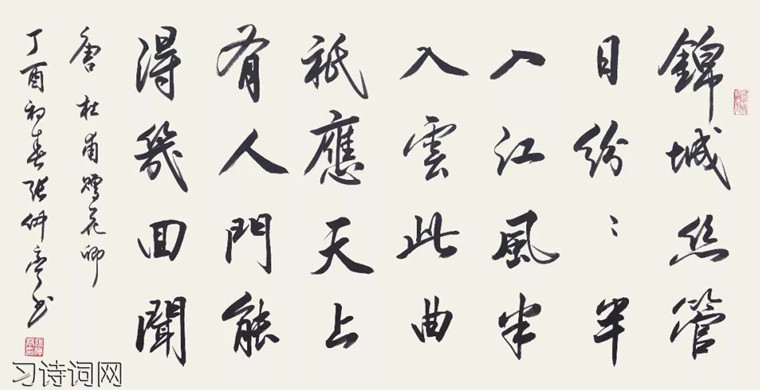 錦城丝管
日紛〻半
入江風半
入雲此曲
祇應天上
有人門能
得幾回聞
唐杜甫贈花卿
丁酉初春張仲亭书
习诗词网